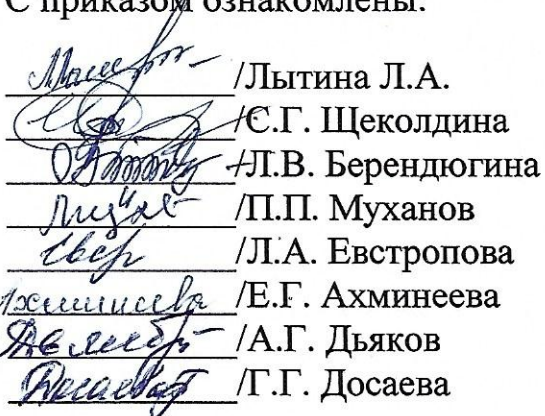 С приказом ознакомлены:
/Лытина Л.А.
/С.Г. Щеколдина
/Л.В. Берендюгина
/П.П. Муханов
/Л.А. Евстропова
/Е.Г. Ахминеева
/А.Г. Дьяков
/Г.Г. Досаева